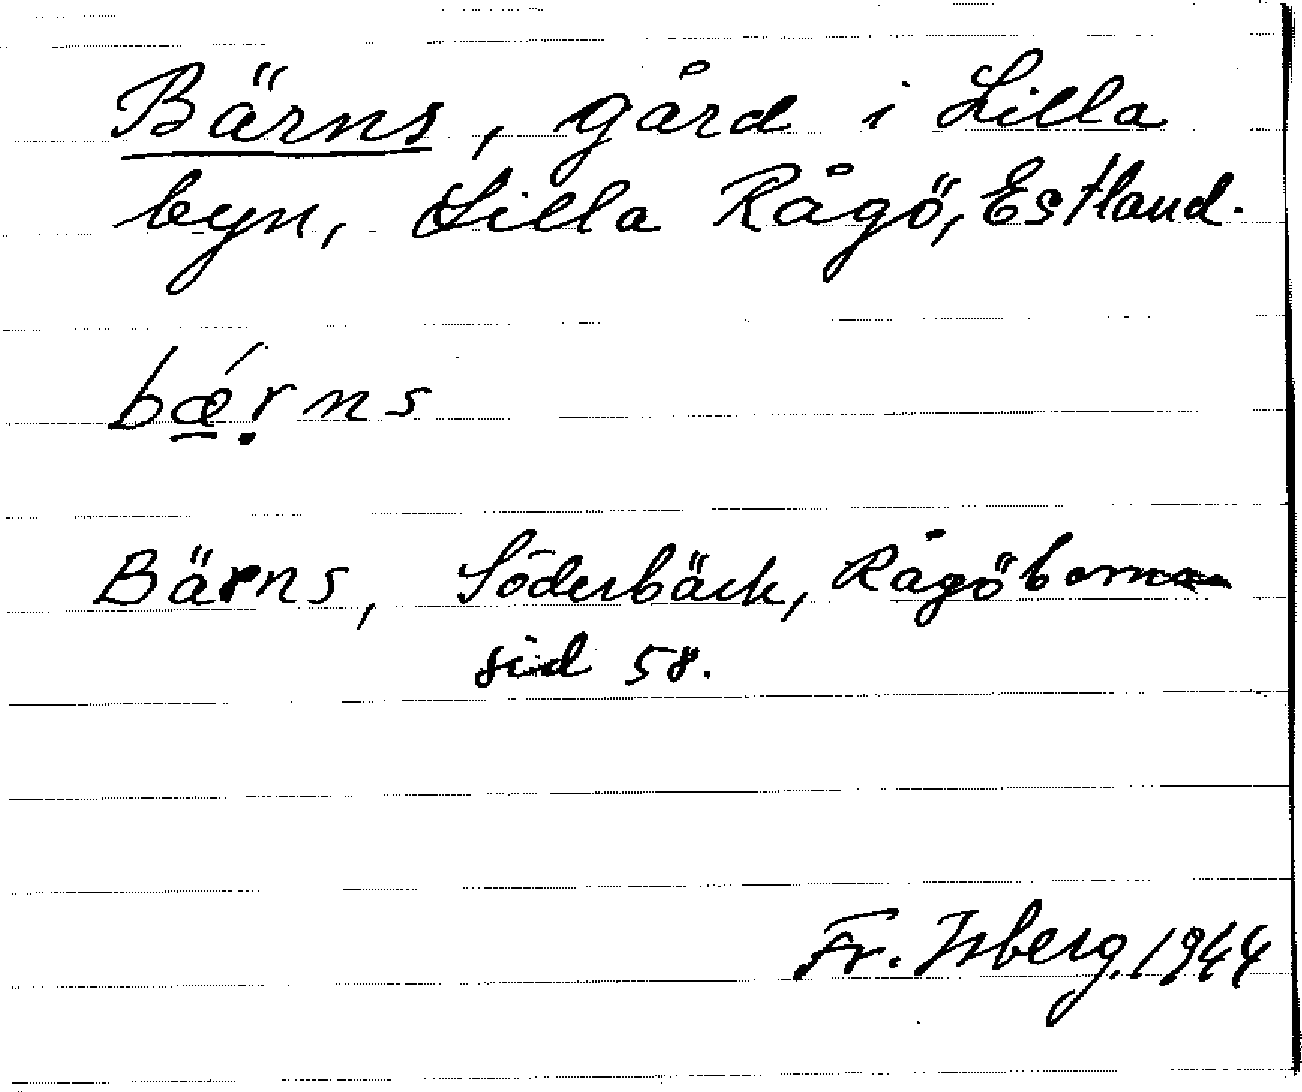 Bärns, gård i Lilla
byn, Lilla Rågö, Estland.
bǽ̱ṛns
Bärns, Söderbäck, Rågöborna
sid 58.
Fr. Isberg. 1944